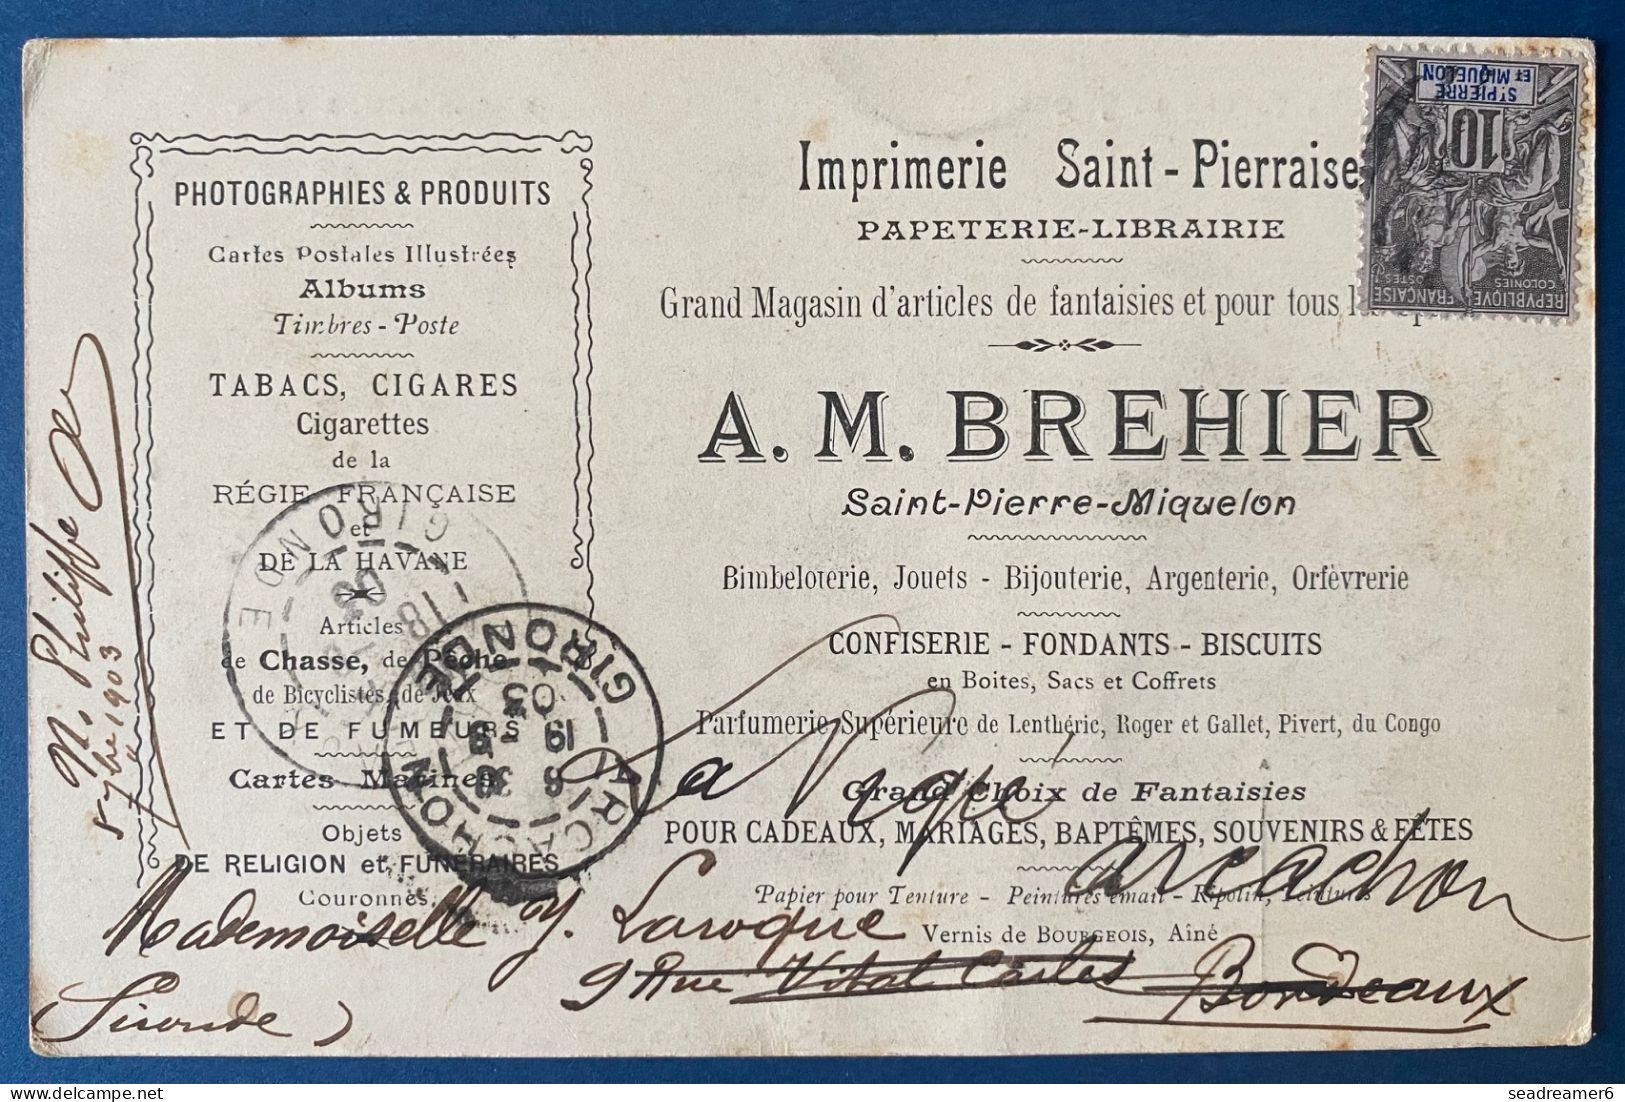 PHOTOGRAPHIES & PRODUITS
Cartes Postales Illustrées
Albums
Timbres-Poste
TABACS, CIGARES
Cigarettes
de la
RÉGIE FRANÇAISE
et
DE LA HAVANE
Articles
de Chasse, de Pêche
de Bicyclistes, de Jeux
ET DE FUMEURS
Cartes Marines
Objets
DE RELIGION et FUNÉRAIRES
Couronnes,
Imprimerie Saint-Pierraise
PAPETERIE-LIBRAIRIE
Grand Magasin d'articles de fantaisies et pour tous
A. M. BREHIER
Saint-Pierre-Miquelon
Bimbeloterie, Jouets - Bijouterie, Argenterie, Orfèvrerie
CONFISERIE - FONDANTS - BISCUITS
en Boites, Sacs et Coffrets
Parfumerie Supérieure de Lenthéric, Roger et Gallet, Pivert, du Congo
Grand Choix de Fantaisies
POUR CADEAUX, MARIAGES, BAPTÊMES, SOUVENIRS & FÊTES
Papier pour Tenture - Peintures émail - Ripolin, Teintures
Vernis de BOURGEOIS, Aîné
ST PIERRE
ET MIQUELON
10
REPVBLIQVE FRANÇAISE
COLONIES POSTES
GIRONDE
18
03
ARCACHON
GIRONDE
6 30
19 - 9
03
N. Philippe
8 7bre 1903
a
arcachon
Mademoiselle Y. Laroque
9 Rue Vital Carles Bordeaux
(Gironde)
seadreamer6 delcampe.net